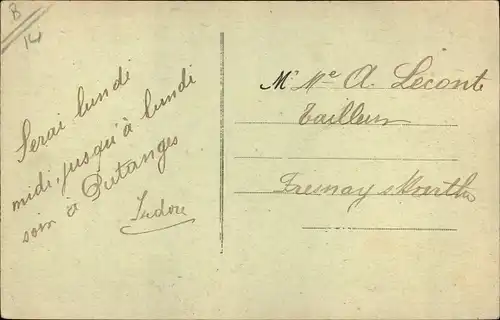 B
14
Serai lundi
midi, jusqu'à lundi
soir à Putanges
Isidore
Mr Me A. Leconte
Tailleur
Fresnay s/Sarthe